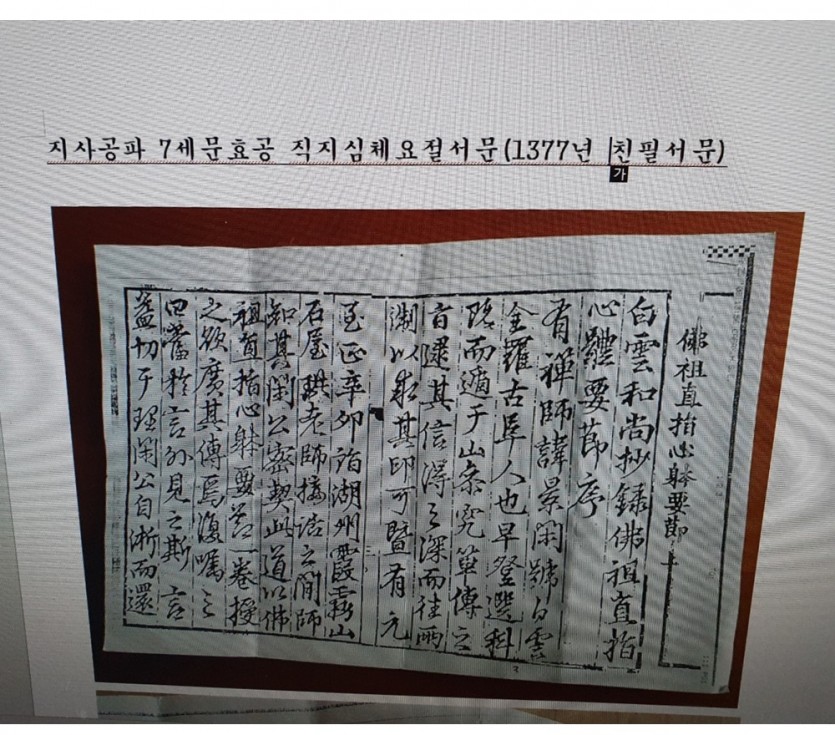 지사공파 7세문효공 직지심체요절서문(1377년 친필서문)
가
佛祖直指心躰要節
白雲和尚抄錄佛祖直指
心體要節序
有禪師諱景閑號白雲
全羅古阜人也早登選科
而遁于山叅究單傳之
旨逮其信得之深而往兩
湖以求其印可曁有元
至正辛卯詣湖州霞霧山
石屋珙老師接話之間師
知其閑公密契此道以佛
祖直指心躰要莭一卷授
之欲廣其傳焉復囑之
曰當於言外見之斯言
盖切于理閑公自而還